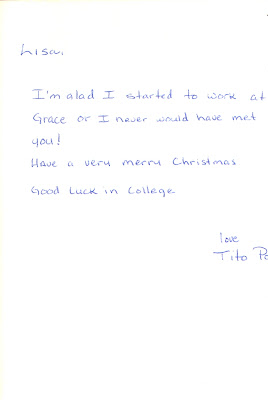 Lisa,
I'm alad I started to work at
Grace or I never would have met
you!
Have a very merry Christmas
Good Luck in College
love
Tito